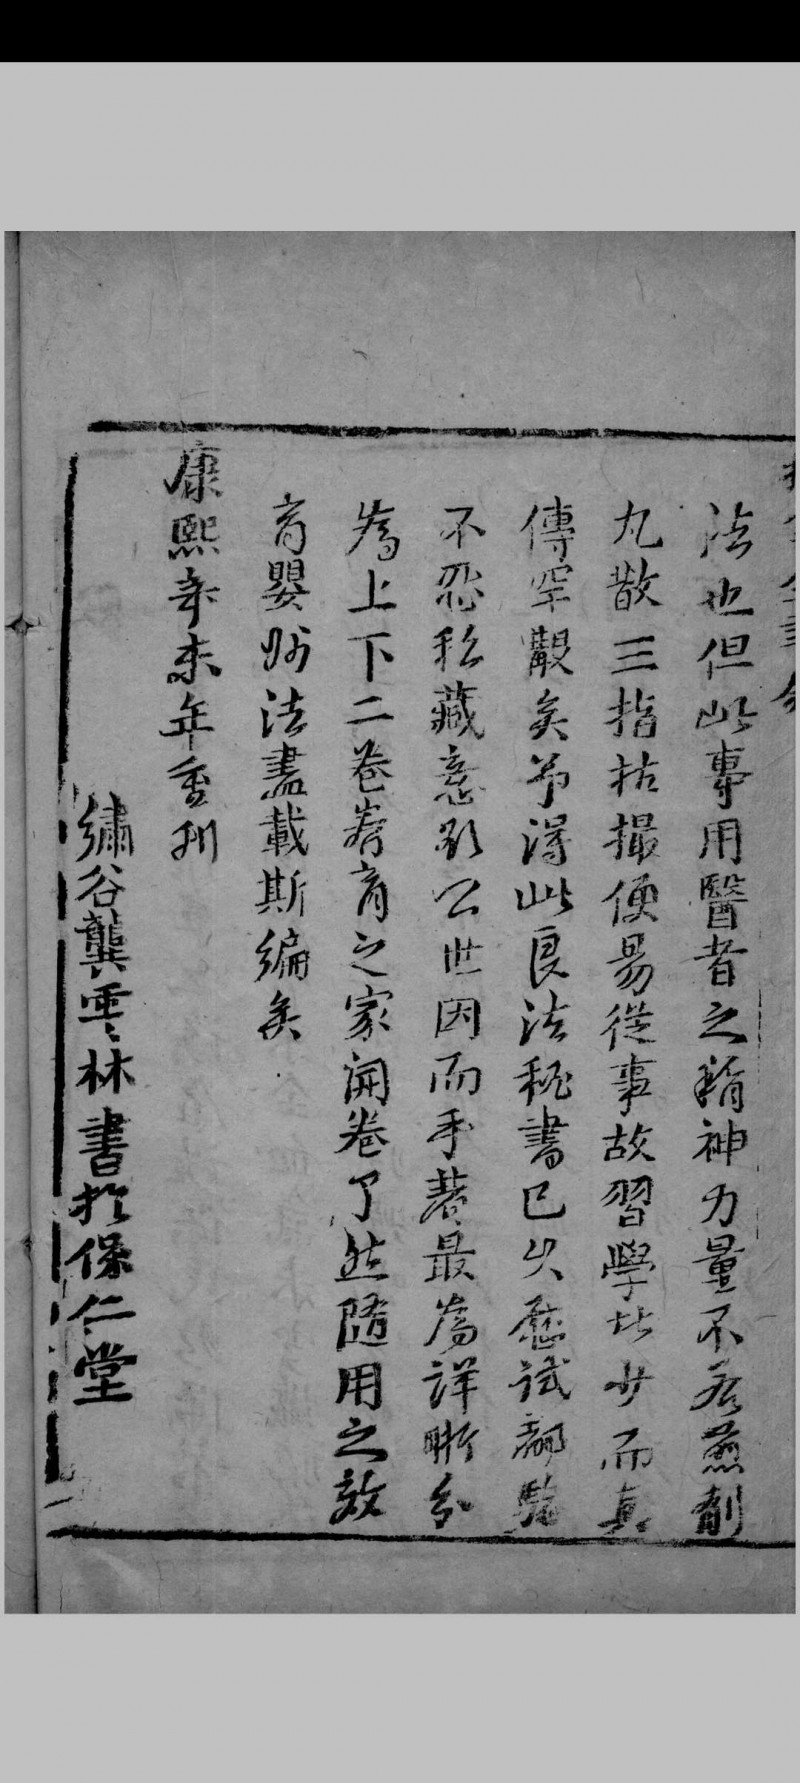 法也但此事用醫者之精神力量不若煎劑
丸散三指拈撮便易從事故習學此少而真
傳罕覩矣予得此良法秘書已久歷試都驗
不忍私藏意欲公世因而手著最為詳晰分
為上下二卷養育之家開卷了然隨用之效
育嬰妙法盡載斯編矣
康熙辛未年重刊
繡谷龔雲林書於保仁堂